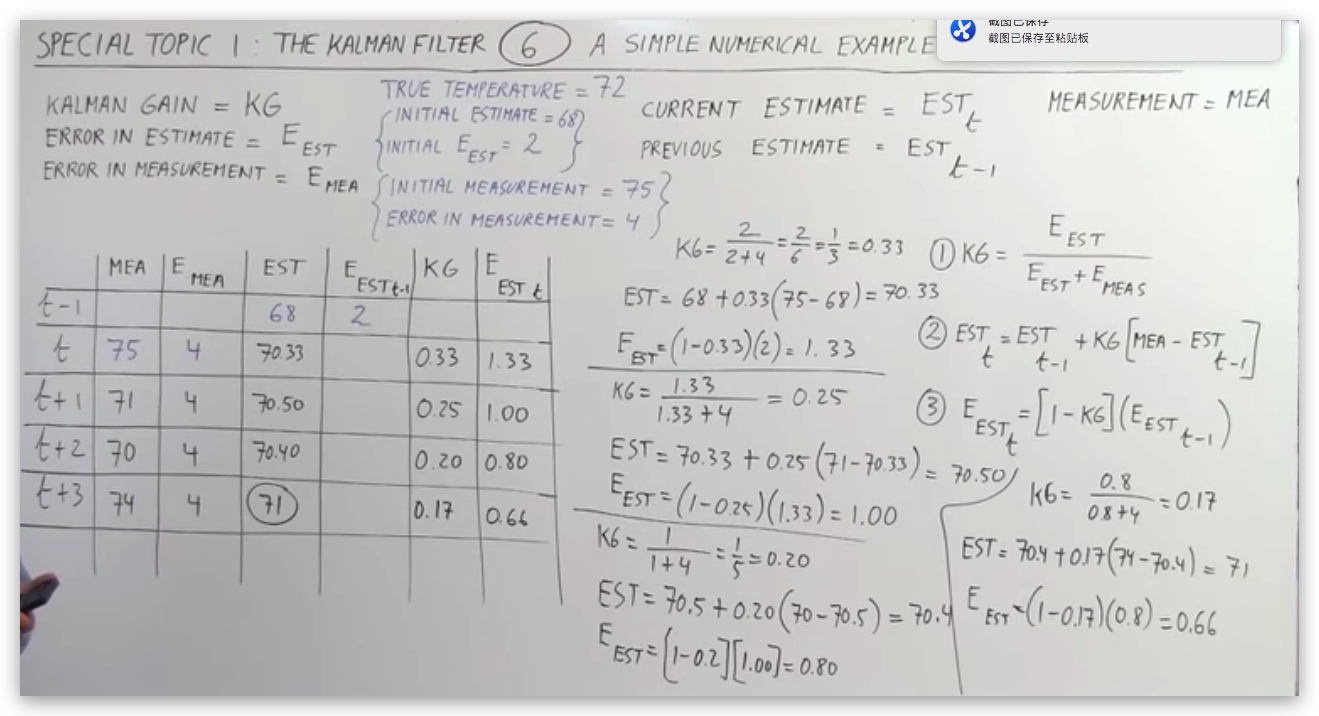 SPECIAL TOPIC 1 : THE KALMAN FILTER 6 A SIMPLE NUMERICAL EXAMPLE
截图已保存
截图已保存至粘贴板
KALMAN GAIN = KG
ERROR IN ESTIMATE = E_EST
ERROR IN MEASUREMENT = E_MEA
TRUE TEMPERATURE = 72
INITIAL ESTIMATE = 68
INITIAL E_EST = 2
INITIAL MEASUREMENT = 75
ERROR IN MEASUREMENT = 4
CURRENT ESTIMATE = EST_t
PREVIOUS ESTIMATE = EST_t-1
MEASUREMENT = MEA
MEA E_MEA EST E_EST t-1 KG E_EST t
t-1 68 2
t 75 4 70.33 0.33 1.33
t+1 71 4 70.50 0.25 1.00
t+2 70 4 70.40 0.20 0.80
t+3 74 4 71 0.17 0.66
KG = 2/(2+4) = 2/6 = 1/3 = 0.33
EST = 68 + 0.33(75-68) = 70.33
E_EST = (1-0.33)(2) = 1.33
KG = 1.33/(1.33+4) = 0.25
EST = 70.33 + 0.25(71-70.33) = 70.50
E_EST = (1-0.25)(1.33) = 1.00
KG = 1/(1+4) = 1/5 = 0.20
EST = 70.5 + 0.20(70-70.5) = 70.4
E_EST = [1-0.2][1.00] = 0.80
① KG = E_EST/(E_EST + E_MEAS)
② EST_t = EST_t-1 + KG[MEA - EST_t-1]
③ E_EST_t = [1-KG](E_EST t-1)
KG = 0.8/(0.8+4) = 0.17
EST = 70.4 + 0.17(74-70.4) = 71
E_EST = (1-0.17)(0.8) = 0.66